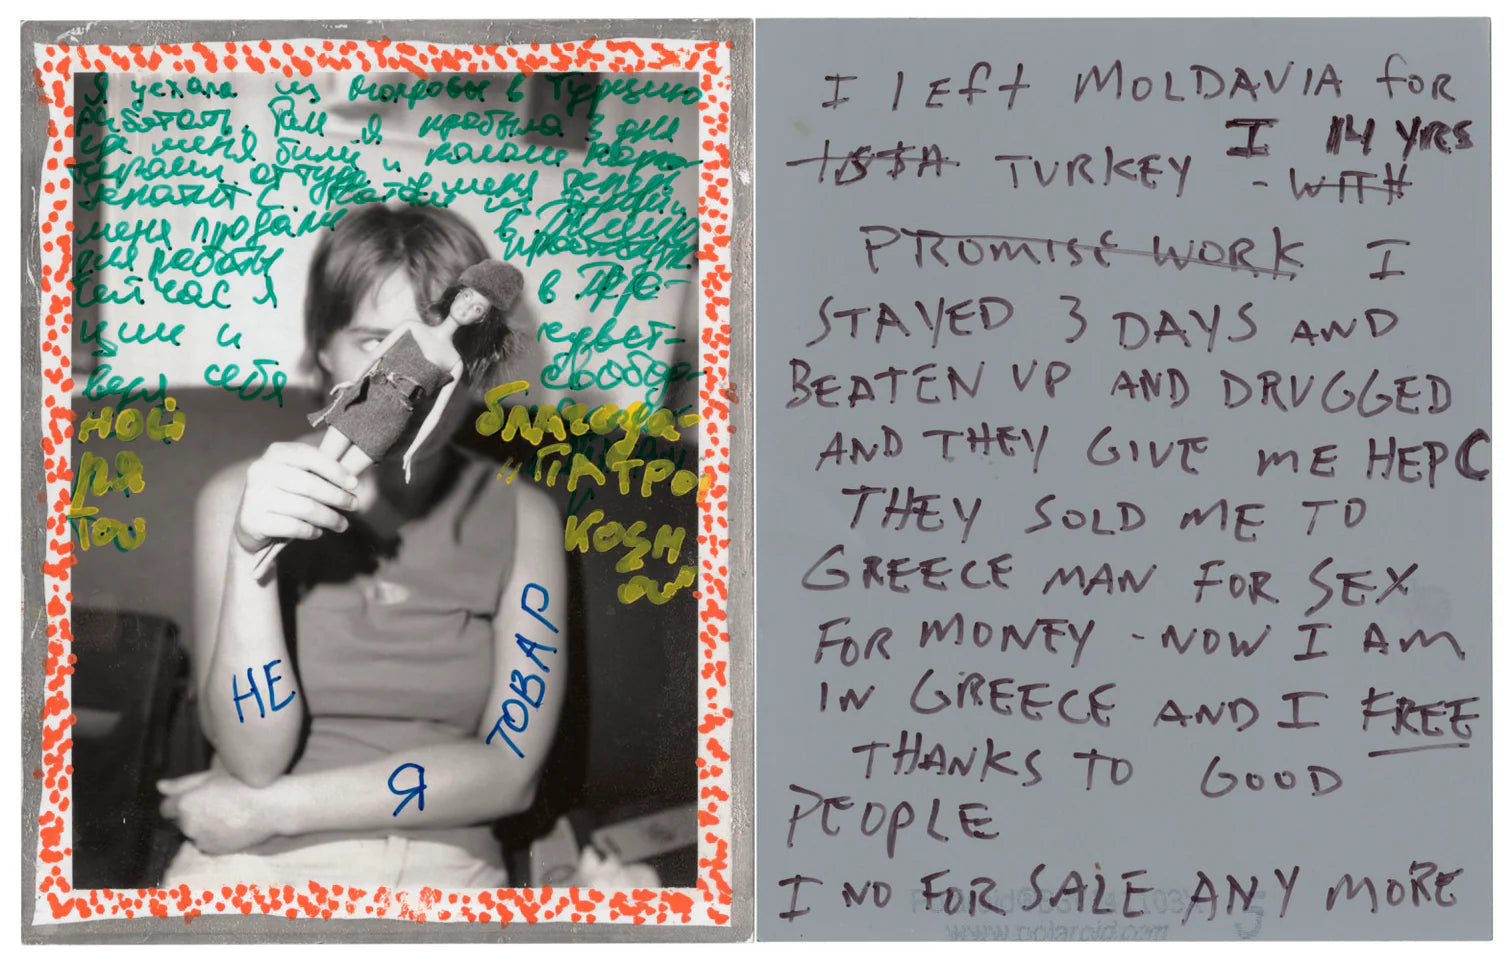 Я уехала из Молдовы в Турцию
работать. Там я пробыла 3 дня
меня били и кололи нарко-
меня продали в
для работы
Сейчас я в Гре-
ции и чувст-
вую себя свобод-
ной благода-
ря
тов
НЕ
ТОВАР
Я
I LEft MOLDAVIA for
TURKEY I 14 YRS
- WITH
PROMISE WORK I
STAYED 3 DAYS AND
BEATEN UP AND DRUGGED
AND THEY GIVE ME HEP C
THEY SOLD ME TO
GREECE MAN FOR SEX
FOR MONEY - NOW I AM
IN GREECE AND I FREE
THANKS TO GOOD
PEOPLE
I NO FOR SALE ANY MORE
www.polaroid.com
5